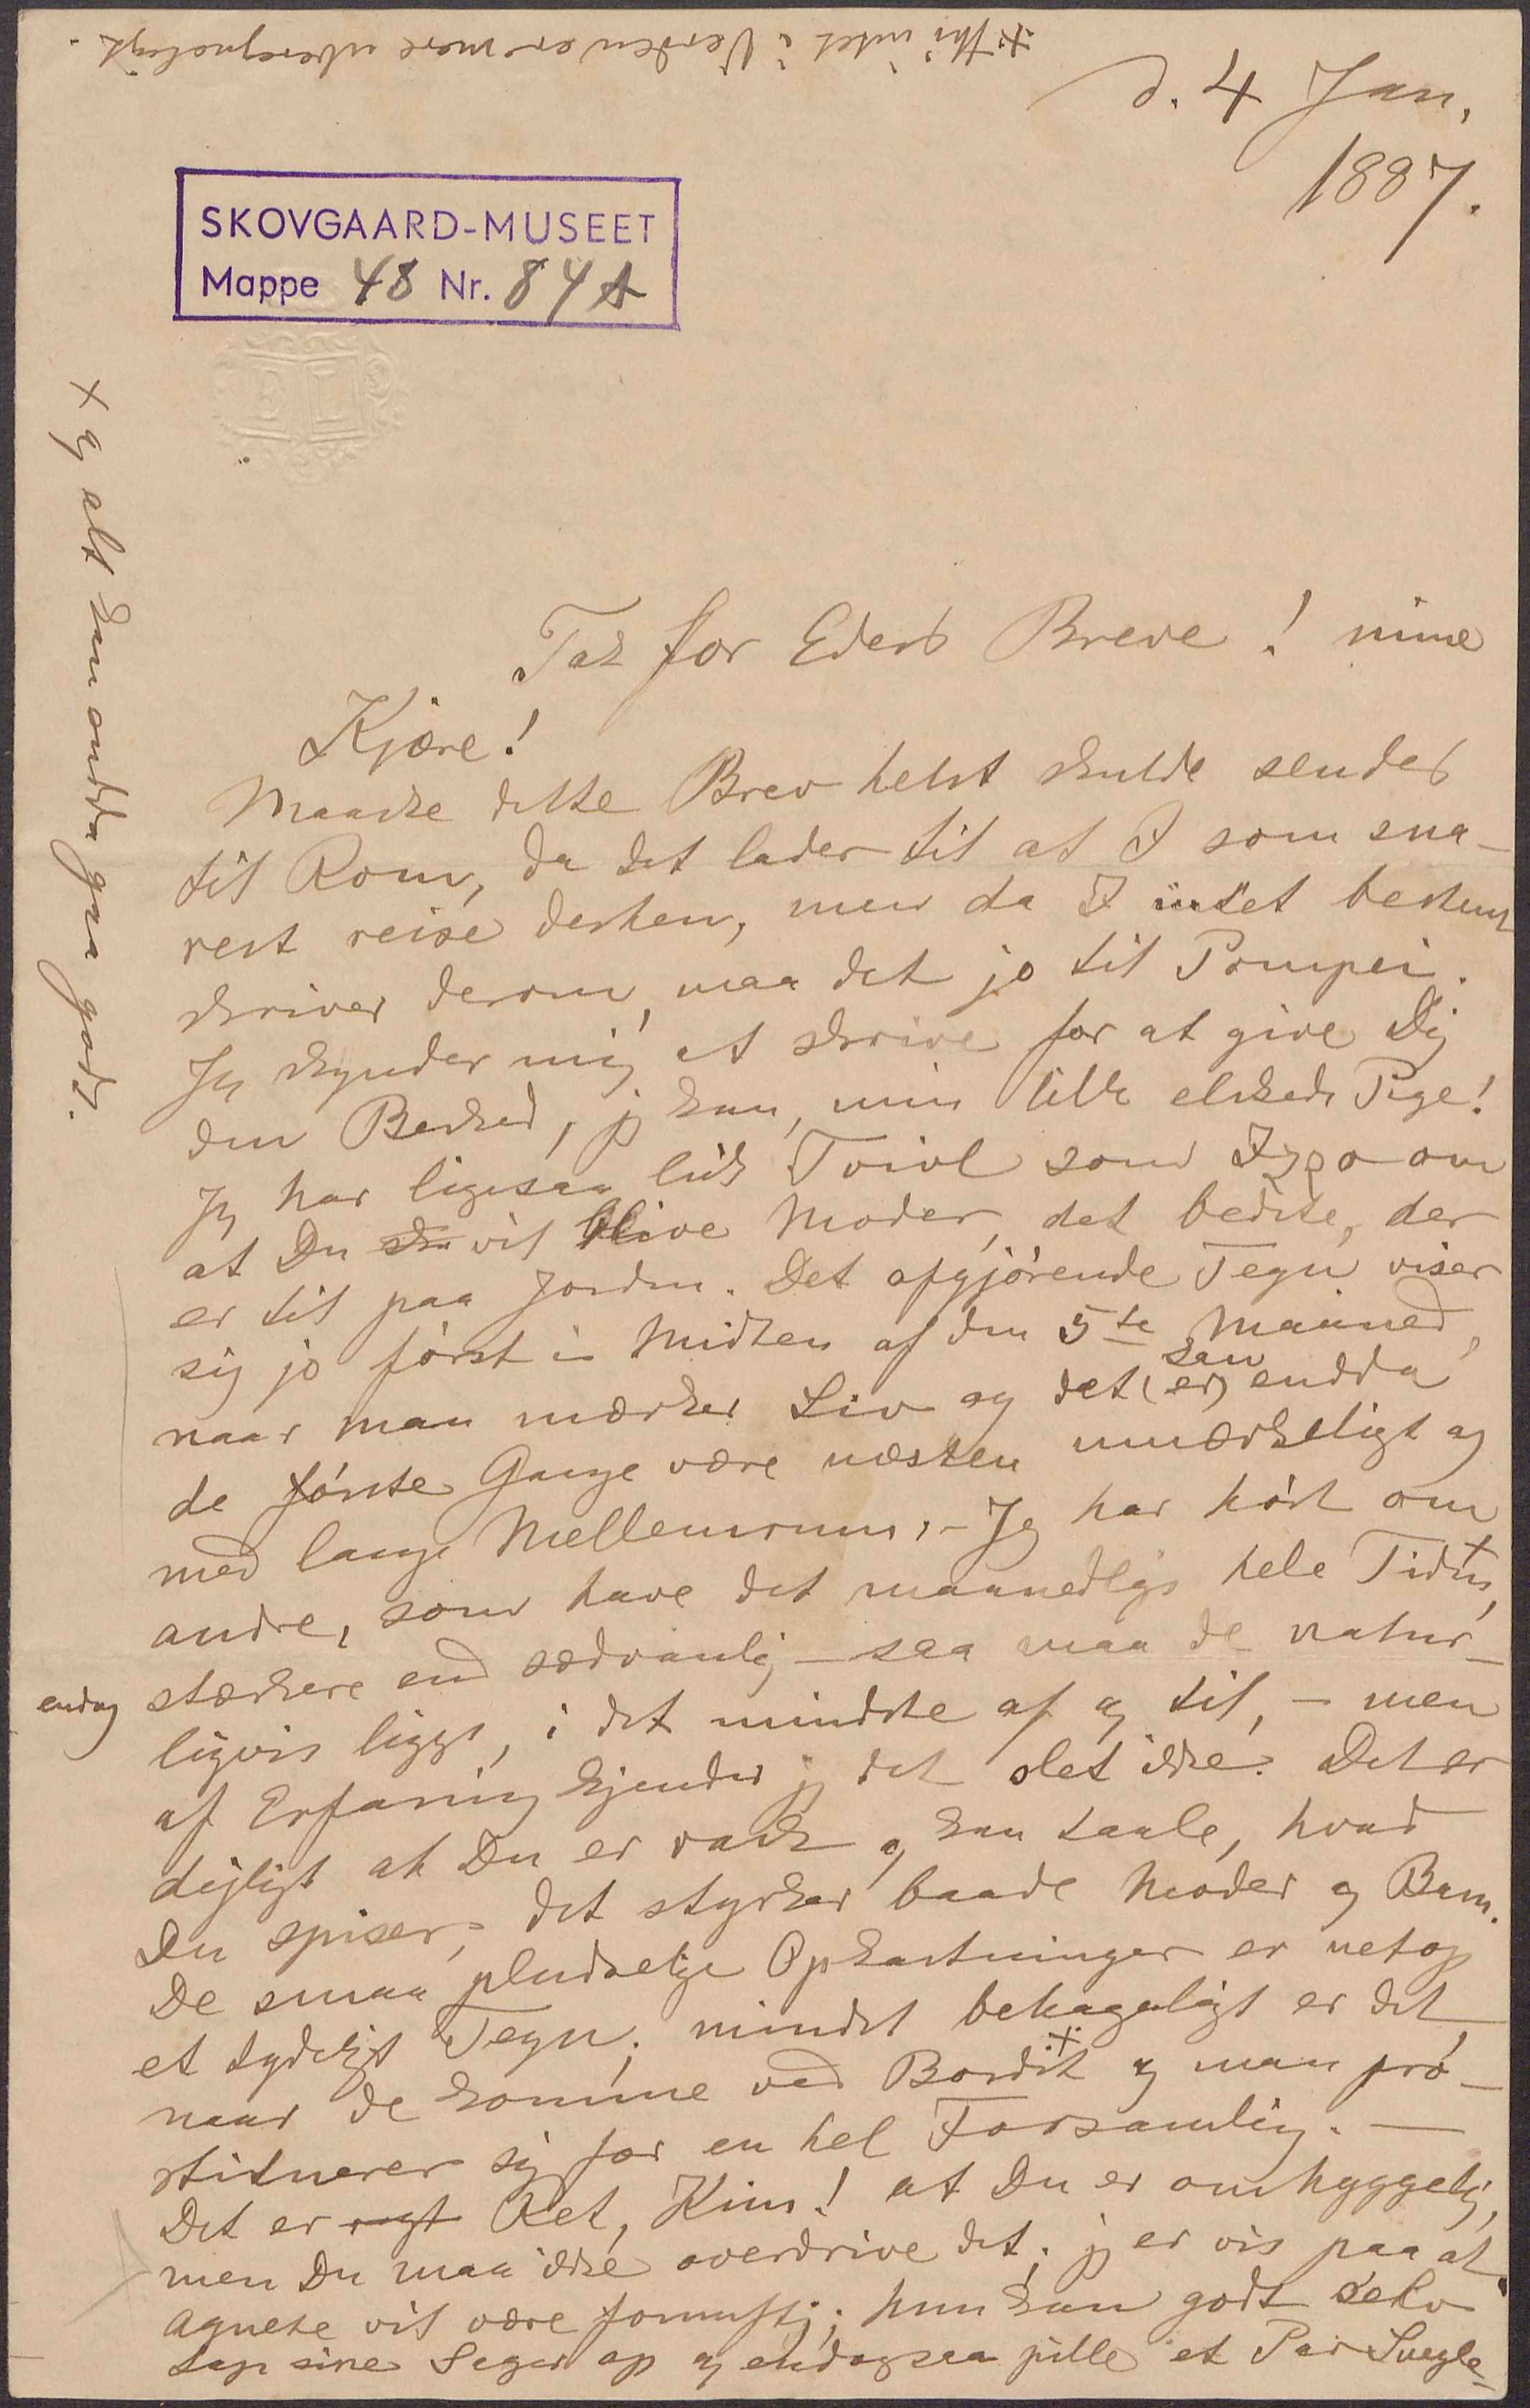 + thi intet i Verden er mere uberegneligt.
d. 4 Jan.
1887.
SKOVGAARD-MUSEET
Mappe 48 Nr. 84A
BL
+ og alt kan endda gaa godt.
Tak for Eders Breve! mine
Kjære!
Maaske dette Brev helst skulde sendes
til Rom, da det lader til at I som sna-
rest reise derhen, men da I intet bestemt
skriver derom, maa det jo til Pompei.
Jeg skynder mig at skrive for at give Dig
den Besked, jeg kan, min lille elskede Pige!
Jeg har ligesaa lidt Tvivl som I om
at Du ska vil blive Moder, det bedste, der
er til paa Jorden. Det afgjørende Tegn viser
sig jo først i Midten af den 5te Maaned,
naar man mærker Liv og det (er) kan endda
de første Gange være næsten umærkeligt og
med lange Mellemrum. - Jeg har hørt om
andre, som have det maanedlige hele Tiden,+
endog stærkere end sædvanlig - saa maa de natur-
ligvis ligge, i det mindste af og til, - men
af Erfaring kjender jeg det slet ikke. Det er
dejligt at Du er rask og kan taale, hvad
Du spiser; det styrker baade Moder og Barn.
De smaa pludselige Opkastninger er netop
et tydeligt Tegn; mindst behageligt er det,
naar de komme ved Bordet+ og man pro-
stituerer sig for en hel Forsamling. -
Det er rigt Ret, Kim! at Du er omhyggelig,
men Du maa ikke overdrive det; jeg er vis paa at
Agnete vil være fornuftig; hun kan godt selv
tage sine Sager op og endogsaa pille et Par Snegle-